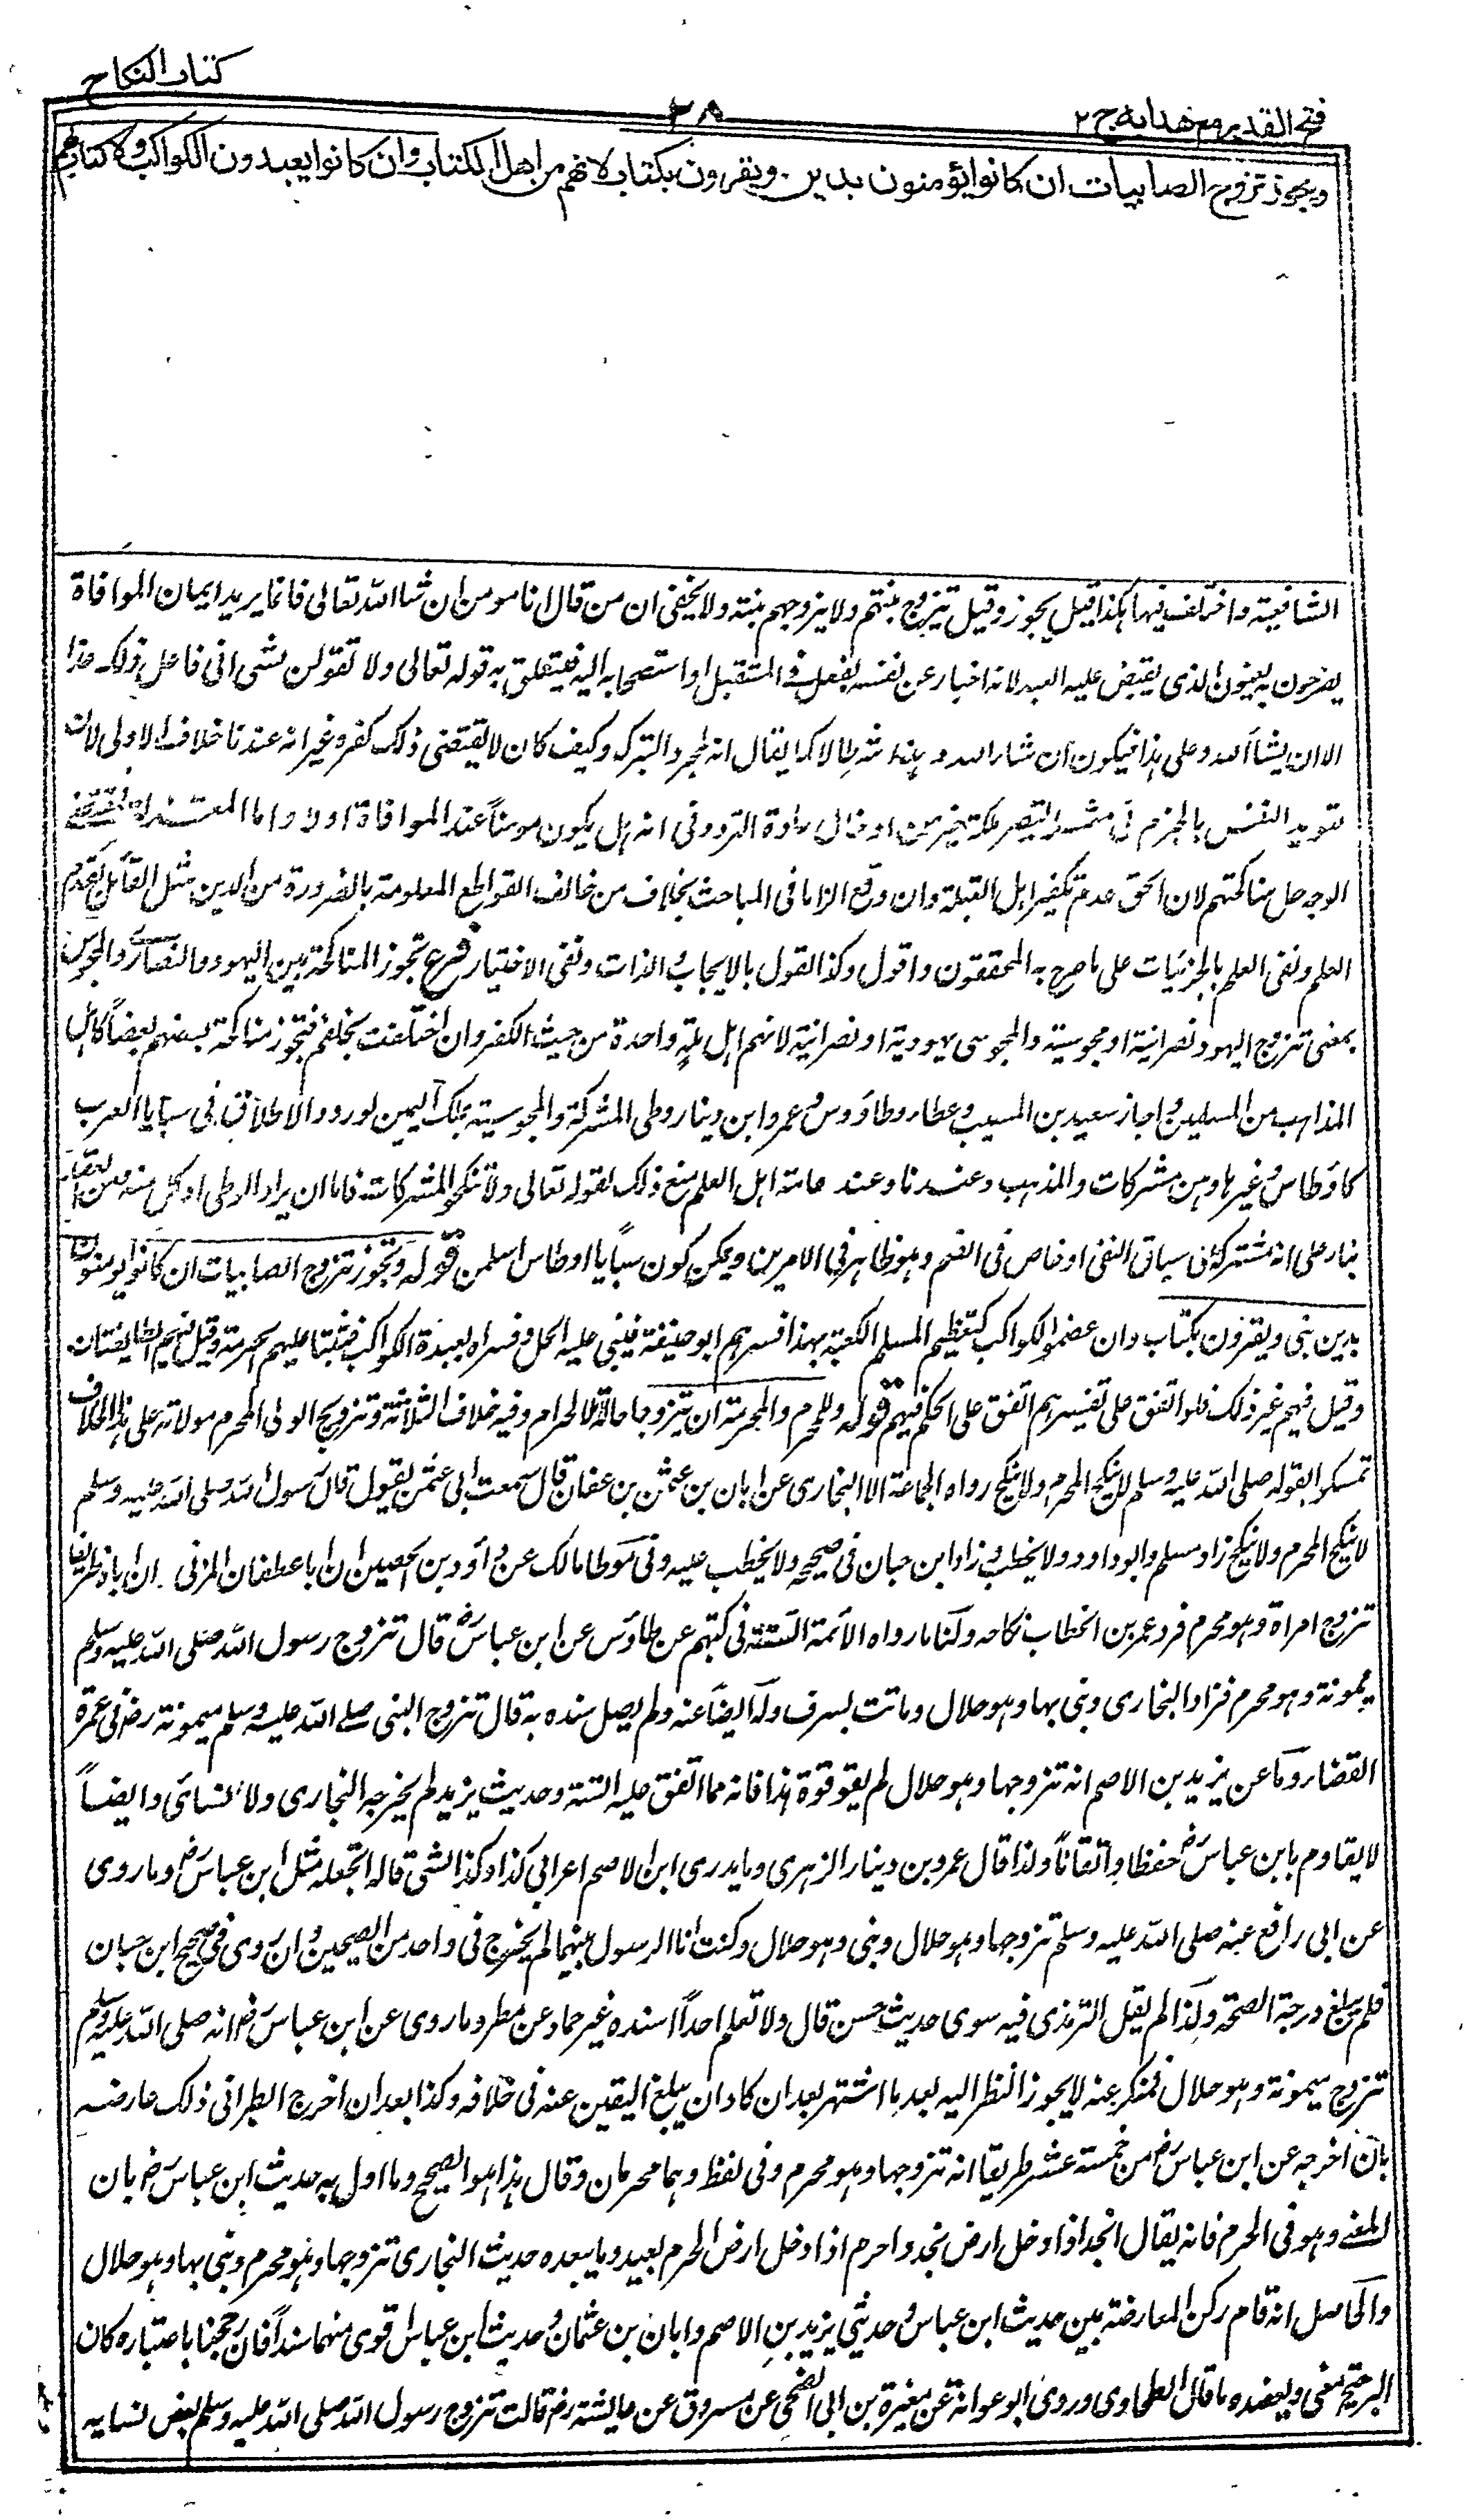 كتاب النكاح
٣٨
فتح القدير مع هداية ج ٢
ويجوز تزوج الصابيات ان كانوا يؤمنون بدين ويقرون بكتاب لانهم من اهل الكتاب وان كانوا يعبدون الكواكب ولا كتاب لهم
الشافعية واختلف فيها هكذا قيل يجوز وقيل يتزوج بنتهم ولا يزوجهم بنته ولا يخفى ان من قال انا مومن ان شاء الله تعالى فانما يريد ايمان الموافاة
يصرحون به يعنون الذى يقبض عليه العبد لانه اخبار عن نفسه بفعل فى المستقبل او استصحابه اليه فيتعلق به قوله تعالى ولا تقولن لشى انى فاعل ذلك غدا
الا ان يشاء الله وعلى هذا فيكون ان شاء الله شرطا لا كما يقال انه لمجرد التبرك وكيف كان لا يقتضى ذلك كفره غير انه عندنا خلاف الاولى لان
تعويد النفس بالجزم فى مثله ليصير ملكة خير من ادخال اداة التردد فى انه هل يكون مومناً عند الموافاة اولا واما المعتزلة فمقتضى
الوجه حل مناكحتهم لان الحق عدم تكفير اهل القبلة وان وقع الزاما فى المباحث بخلاف من خالف القواطع المعلومة بالضرورة من الدين مثل القائل بقدم
العلم ونفى العلم بالجزئيات على ما صرح به المحققون واقول وكذا القول بالايجاب بالذات ونفى الاختيار فرع تجوز المناكحة بين اليهود والنصارى والمجوس
بمعنى تزوج اليهود نصرانية او مجوسية والمجوسى يهودية او نصرانية لانهم اهل ملة واحدة من حيث الكفر وان اختلفت نحلهم فتجوز مناكحة بعضهم بعضاً كاهل
المذاهب من المسلمين واجاز سعيد بن المسيب وعطاء وطاؤوس وعمرو ابن دينار وطى المشركة والمجوسية بملك اليمين لورود الاطلاق فى سبايا العرب
كاوطاس وغيرها وهن مشركات والمذهب وعندنا وعند عامة اهل العلم منع ذلك لقوله تعالى ولا تنكحوا المشركات فاما ان يراد الوطى او كل منه ومن العقد
بناء على انه مشترك فى سياق النفى او خاص فى الضم وهو ظاهر فى الامرين ويمكن كون سبايا اوطاس اسلمن قوله ويجوز تزوج الصابيات ان كانوا يومنون
بدين نبى ويقرون بكتاب وان عظموا الكواكب كتعظيم المسلم الكعبة بهذا فسرهم ابو حنيفة فبنى عليه الحل وفسراه بعبدة الكواكب فبنيا عليهم الحرمة وقيل فيهم الطايفتان
وقيل فيهم غير ذلك فلو اتفق على تفسيرهم اتفق على الحكم فيهم قوله وللمحرم والمحرمة ان يتزوجا حالة الاحرام وفيه خلاف الثلاثة وتزويج الولى المحرم مولاته على هذا الخلاف
تمسكوا بقوله صلى الله عليه وسلم لا ينكح المحرم ولا ينكح رواه الجماعة الا البخارى عن ابان بن عثمن بن عفان قال سمعت ابى عثمن يقول قال رسول الله صلى الله عليه وسلم
لا ينكح المحرم ولا ينكح زاد مسلم وابو داود ولا يخطب وزاد ابن حبان فى صحيحه ولا يخطب عليه وفى موطا مالك عن داود بن الحصين ان ابا غطفان المزنى ان اباه طريفا
تزوج امراة وهو محرم فرد عمر بن الخطاب نكاحه ولنا ما رواه الائمة الستة فى كتبهم عن طاؤس عن ابن عباس رض قال تزوج رسول الله صلى الله عليه وسلم
ميمونة وهو محرم فزاد البخارى وبنى بها وهو حلال وماتت بسرف وله ايضا عنه ولم يصل سنده به قال تزوج النبى صلى الله عليه وسلم ميمونة رض فى عمرة
القضاء وما عن يزيد بن الاصم انه تزوجها وهو حلال لم يقو قوة هذا فانه مما اتفق عليه الستة وحديث يزيد لم يخرجه البخارى ولا النسائى وايضاً
لا يقاوم بابن عباس رض حفظا واتقاناً ولذا قال عمرو بن دينار الزهرى وما يدرى ابن الاصم اعرابى كذا وكذا لشى قاله اتجعله مثل ابن عباس رض وما روى
عن ابى رافع عنه صلى الله عليه وسلم تزوجها وهو حلال وبنى وهو حلال وكنت انا الرسول بينهما لم يخرج فى واحد من الصحيحين وان روى فى صحيح ابن حبان
فلم يبلغ درجة الصحة ولذا لم يقل الترمذى فيه سوى حديث حسن قال ولا نعلم احداً اسنده غير حماد عن مطر وما روى عن ابن عباس رض انه صلى الله عليه وسلم
تزوج ميمونة وهو حلال فمنكر عنه لا يجوز النظر اليه بعد ما اشتهر بعد ان كاد ان يبلغ اليقين عنه فى خلافه وكذا بعد ان اخرج الطبرانى ذلك عارضه
بان اخرجه عن ابن عباس رض من خمسة عشر طريقا انه تزوجها وهو محرم وفى لفظ وهما محرمان وقال هذا هو الصحيح وما اول به حديث ابن عباس رض بان
المعنى وهو فى الحرم فانه يقال انجد اذا دخل ارض نجد واحرم اذا دخل ارض الحرم بعيد ويابعده حديث البخارى تزوجها وهو محرم وبنى بها وهو حلال
والحاصل انه قام ركن المعارضة بين حديث ابن عباس وحديثى يزيد بن الاصم وابان بن عثمان وحديث ابن عباس اقوى منهما سنداً فان رجحنا باعتباره كان
الترجيح معنى ويعضده ما قال الطحاوى وروى ابو عوانة عن مغيرة بن ابى الضحى عن مسروق عن عايشة رض قالت تزوج رسول الله صلى الله عليه وسلم بعض نسايه